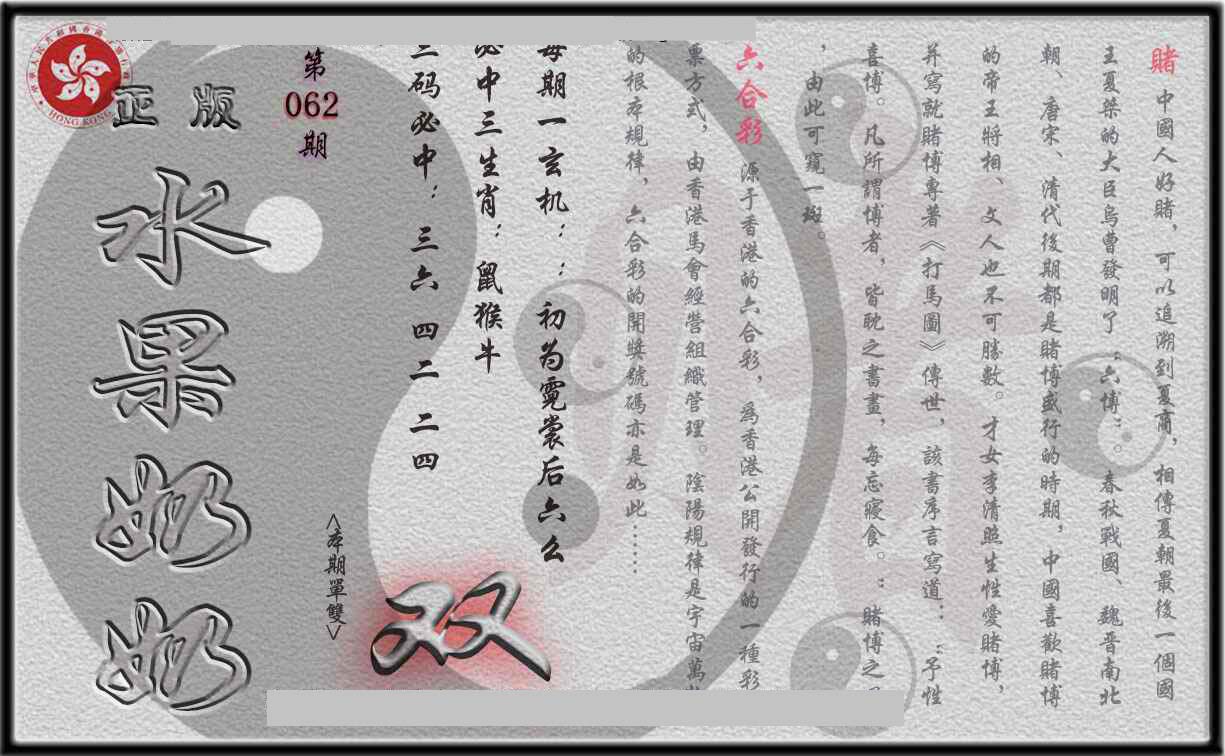 賭 中國人好賭，可以追溯到夏商，相傳夏朝最後一個國
王夏桀的大臣烏曹發明了“六博”。春秋戰國、魏晋南北
朝、唐宋、清代後期都是賭博盛行的時期，中國喜歡賭博
的帝王將相、文人也不可勝數。才女李清照生性愛賭博，
并寫就賭博專著《打馬圖》傳世，該書序言寫道：“予性
喜博。凡所謂博者，皆耽之書畫，每忘寢食。”賭博之
，由此可窺一斑。
六合彩 源于香港的六合彩，爲香港公開發行的一種彩
票方式，由香港馬會經營組織管理。陰陽規律是宇宙萬
的根本規律，六合彩的開獎號碼亦是如此……
每期一玄机：：初为霓裳后六么
必中三生肖：鼠猴牛
三码必中：三六 四二 二四
第
062
期
<本期單雙>
双
正版
水果奶奶
HONG KONG